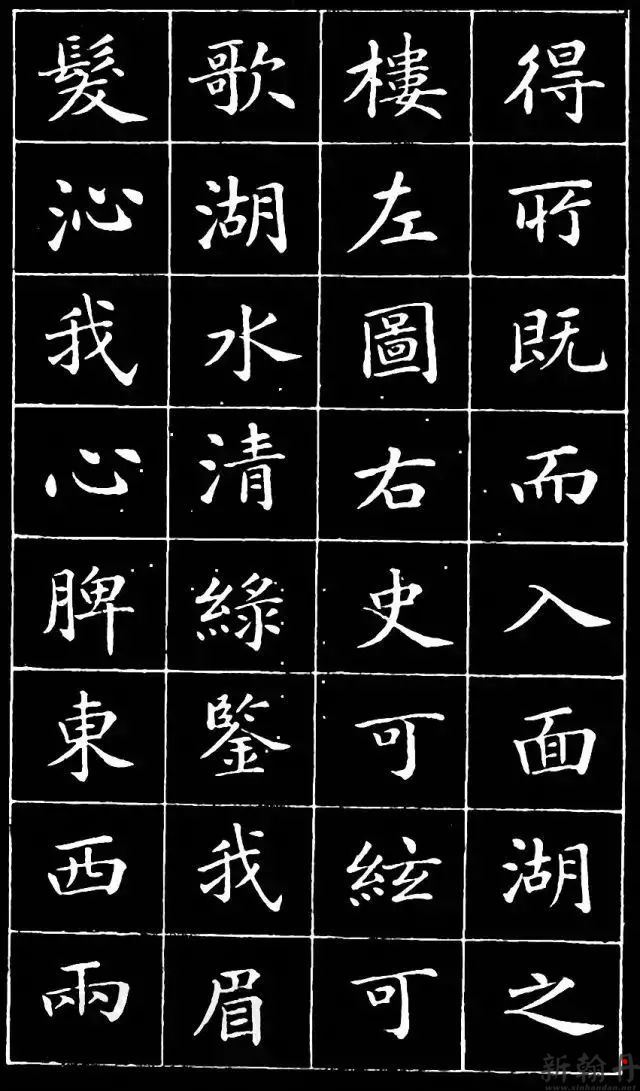 得所既而入面湖之
樓左圖右史可絃可
歌湖水清綠鑒我眉
髮沁我心脾東西兩
新翰丹